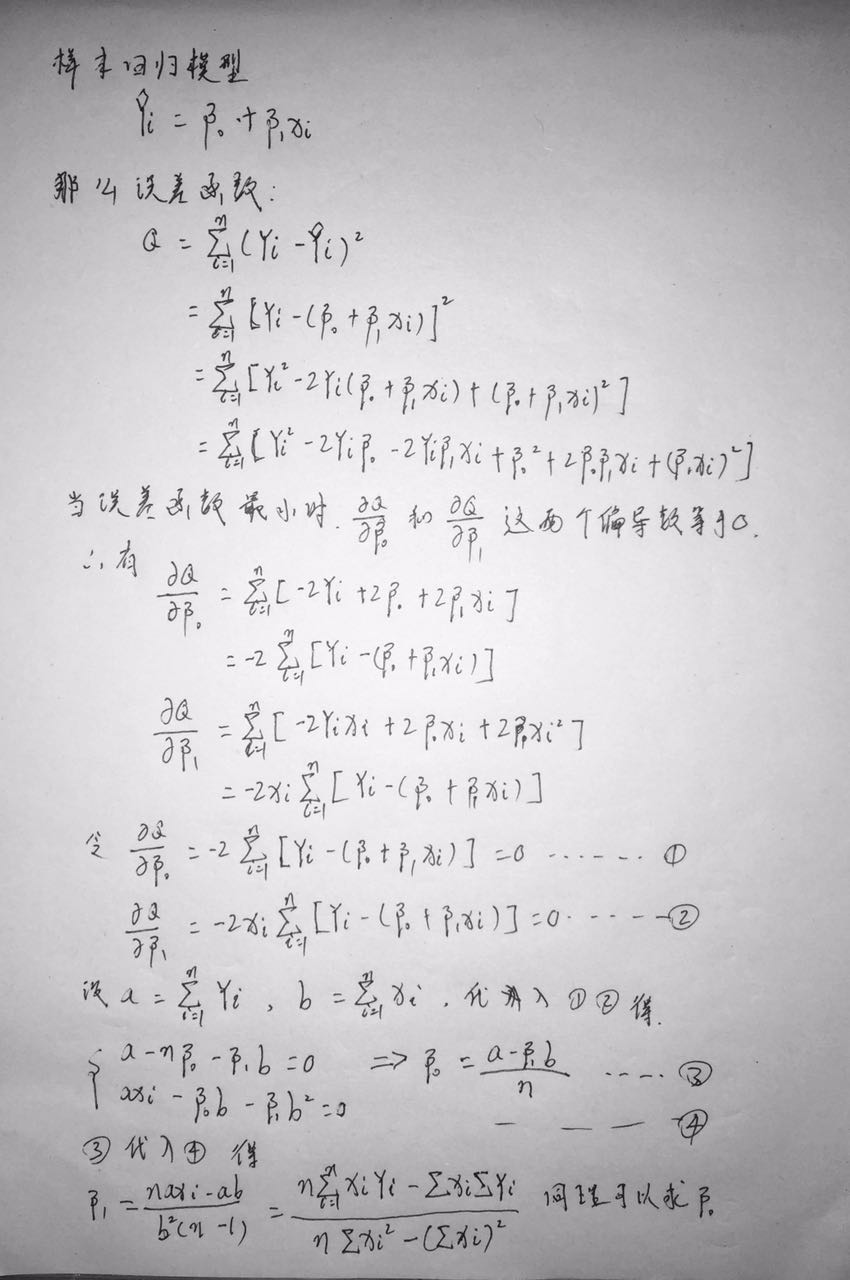 样本回归模型
Ŷi = β₀ + β₁xi
那么误差函数:
Q = Σⁿᵢ₌₁ (Yi - Ŷi)²
= Σⁿᵢ₌₁ [Yi - (β₀ + β₁xi)]²
= Σⁿᵢ₌₁ [Yi² - 2Yi(β₀ + β₁xi) + (β₀ + β₁xi)²]
= Σⁿᵢ₌₁ [Yi² - 2Yiβ₀ - 2Yiβ₁xi + β₀² + 2β₀β₁xi + (β₁xi)²]
当误差函数最小时. ∂Q/∂β₀ 和 ∂Q/∂β₁ 这两个偏导数等于0.
∴有
∂Q/∂β₀ = Σⁿᵢ₌₁ [-2Yi + 2β₀ + 2β₁xi]
= -2 Σⁿᵢ₌₁ [Yi - (β₀ + β₁xi)]
∂Q/∂β₁ = Σⁿᵢ₌₁ [-2Yixi + 2β₀xi + 2β₁xi²]
= -2xi Σⁿᵢ₌₁ [Yi - (β₀ + β₁xi)]
令 ∂Q/∂β₀ = -2 Σⁿᵢ₌₁ [Yi - (β₀ + β₁xi)] = 0 ······· ①
∂Q/∂β₁ = -2xi Σⁿᵢ₌₁ [Yi - (β₀ + β₁xi)] = 0 ······ ②
设 a = Σⁿᵢ₌₁ Yi , b = Σⁿᵢ₌₁ xi . 代入①②得.
{ a - nβ₀ - β₁b = 0 => β₀ = (a - β₁b)/n ····· ③
axi - β₀b - β₁b² = 0 — — — — ④
③代入④ 得
β₁ = (naxi - ab)/(b²(n-1)) = (nΣⁿᵢ₌₁ xiYi - ΣxiΣYi)/(nΣxi² - (Σxi)²) 同理可以求β₀